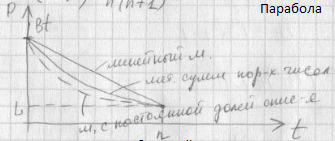 n(n+1)
Парабола
P
Bt
линейный м.
мет. сумм пор-х чисел
L
м. с постоянной долей спис-я
n
t